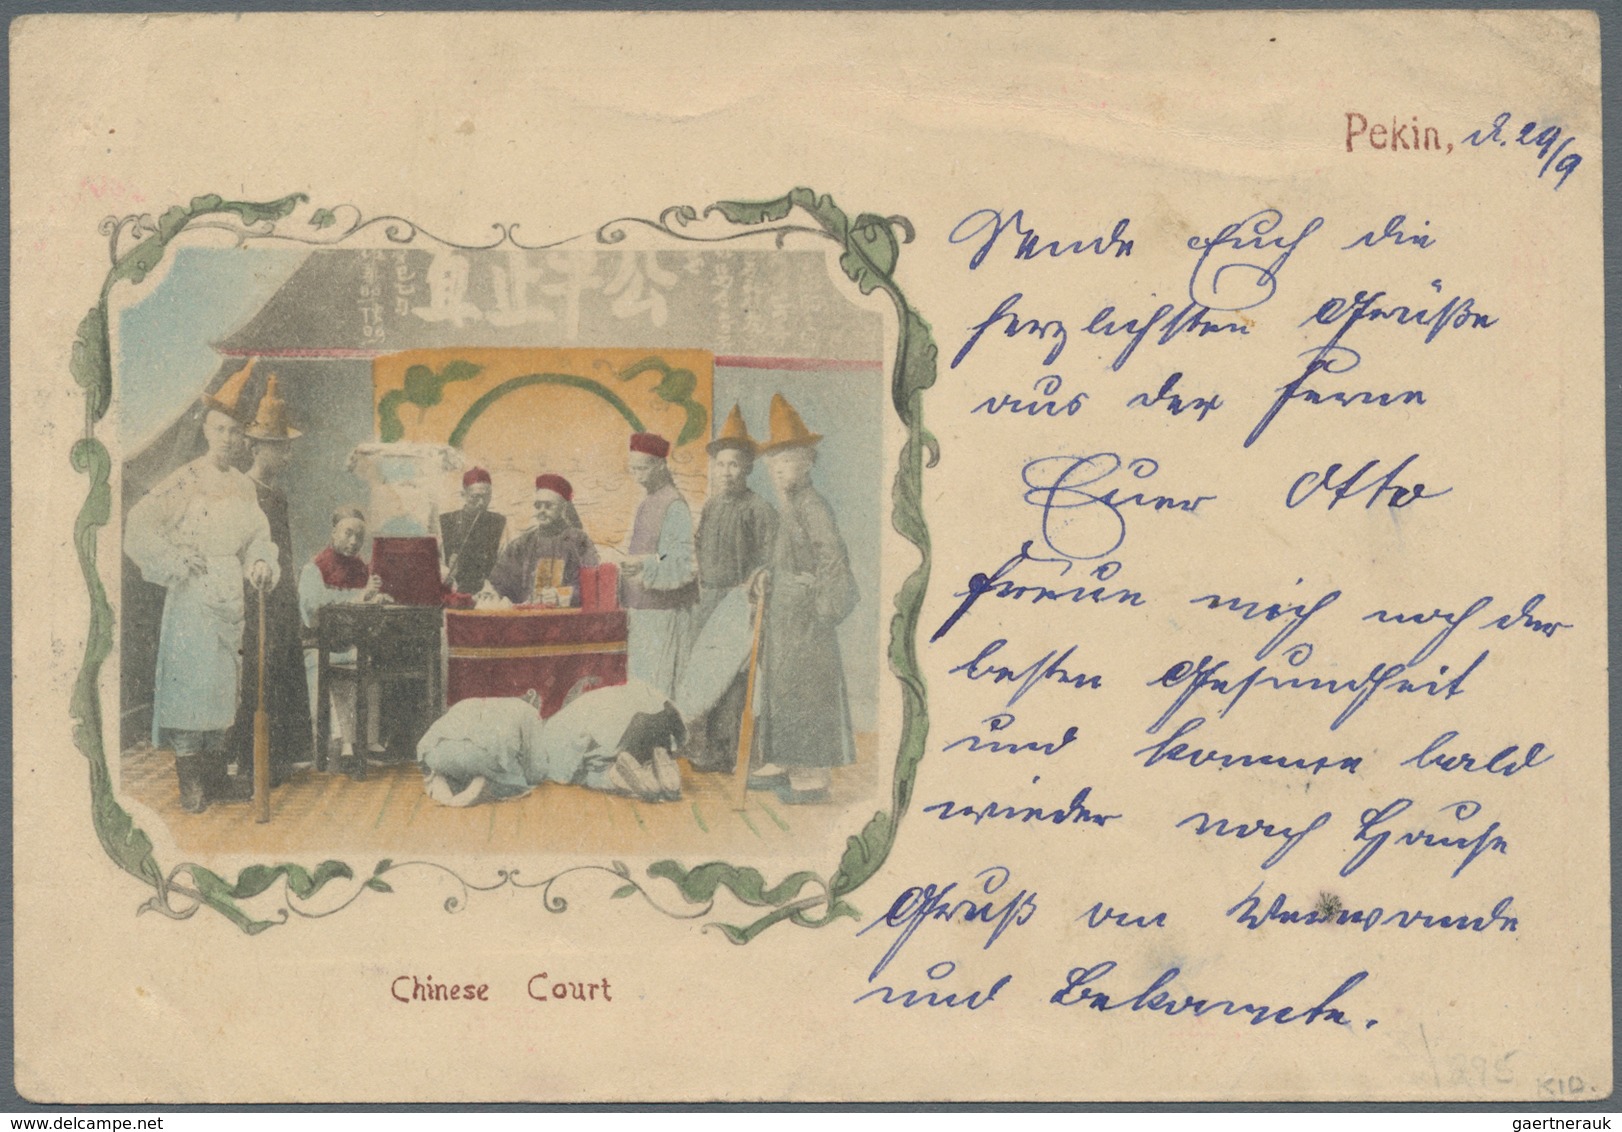 Pekin, d. 29/9
Sende Euch die
herzlichsten Grüße
aus der Ferne
Euer Otto
Freue mich noch der
besten Gesundheit
und komme bald
wieder nach Hause
Gruß an Verwande
und Bekannte.
公平正直
Chinese Court
1295
KID.
gaertnerauk